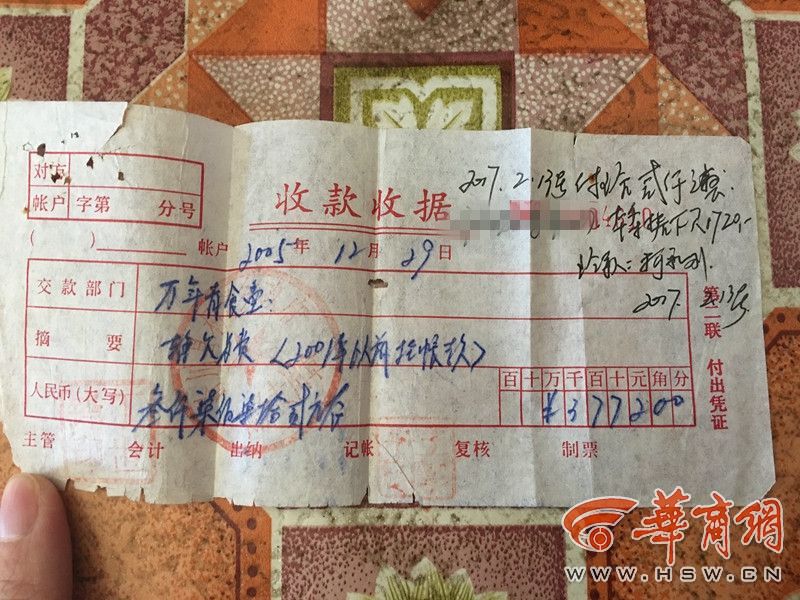 对方
帐户 字第 分号
收款收据
2017.2.13号付给贰仟元
下欠1720.-
2017. 2.13号
( ) 帐户 2005年12月29日
交款部门 万年有食堂
摘要 欠费(2001年以前挂帐款)
人民币(大写) 叁仟柒佰柒拾贰元
百十万千百十元角分
¥377200
第二联 付出凭证
主管 会计 出纳 记帐 复核 制票
華商網
WWW.HSW.CN